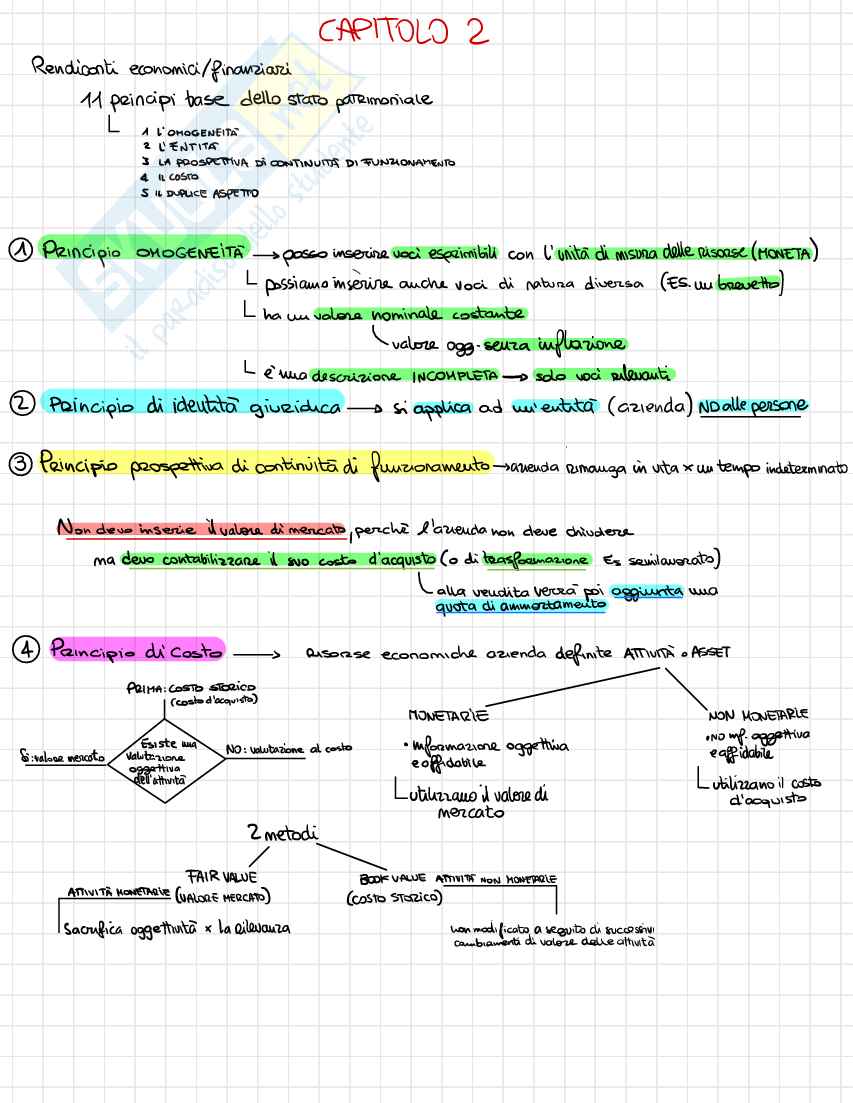 CAPITOLO 2
Rendiconti economici/finanziari
11 principi base dello stato patrimoniale
1 L'OMOGENEITÀ
2 L'ENTITÀ
3 LA PROSPETTIVA DI CONTINUITÀ DI FUNZIONAMENTO
4 IL COSTO
5 IL DUPLICE ASPETTO
SKUOLA.net
il paradiso dello studente
1 Principio OMOGENEITÀ → posso inserire voci esprimibili con l'unità di misura delle risorse (MONETA)
possiamo inserire anche voci di natura diversa (ES. un brevetto)
ha un valore nominale costante
valore ogg. senza inflazione
è una descrizione INCOMPLETA → solo voci rilevanti
2 Principio di identità giuridica → si applica ad un'entità (azienda) NO alle persone
3 Principio prospettiva di continuità di funzionamento → azienda rimanga in vita x un tempo indeterminato
Non devo inserie il valore di mercato, perchè l'azienda non deve chiudere
ma devo contabilizzare il suo costo d'acquisto (o di trasformazione Es semilavorato)
alla vendita verrà poi aggiunta una
quota di ammortamento
4 Principio di Costo → RISORSE economiche azienda definite ATTIVITÀ o ASSET
PRIMA: COSTO STORICO
(costo d'acquisto)
Esiste una
valutazione
oggettiva
dell'attività
Si: valore mercato
NO: valutazione al costo
MONETARIE
• Informazione oggettiva
e affidabile
utilizzano il valore di
mercato
NON MONETARIE
• NO inf. oggettiva
e affidabile
utilizzano il costo
d'acquisto
2 metodi
FAIR VALUE
ATTIVITÀ MONETARIE (VALORE MERCATO)
Sacrifica oggettività x la rilevanza
BOOK VALUE ATTIVITÀ NON MONETARIE
(COSTO STORICO)
non modificato a seguito di successivi
cambiamenti di valore delle attività